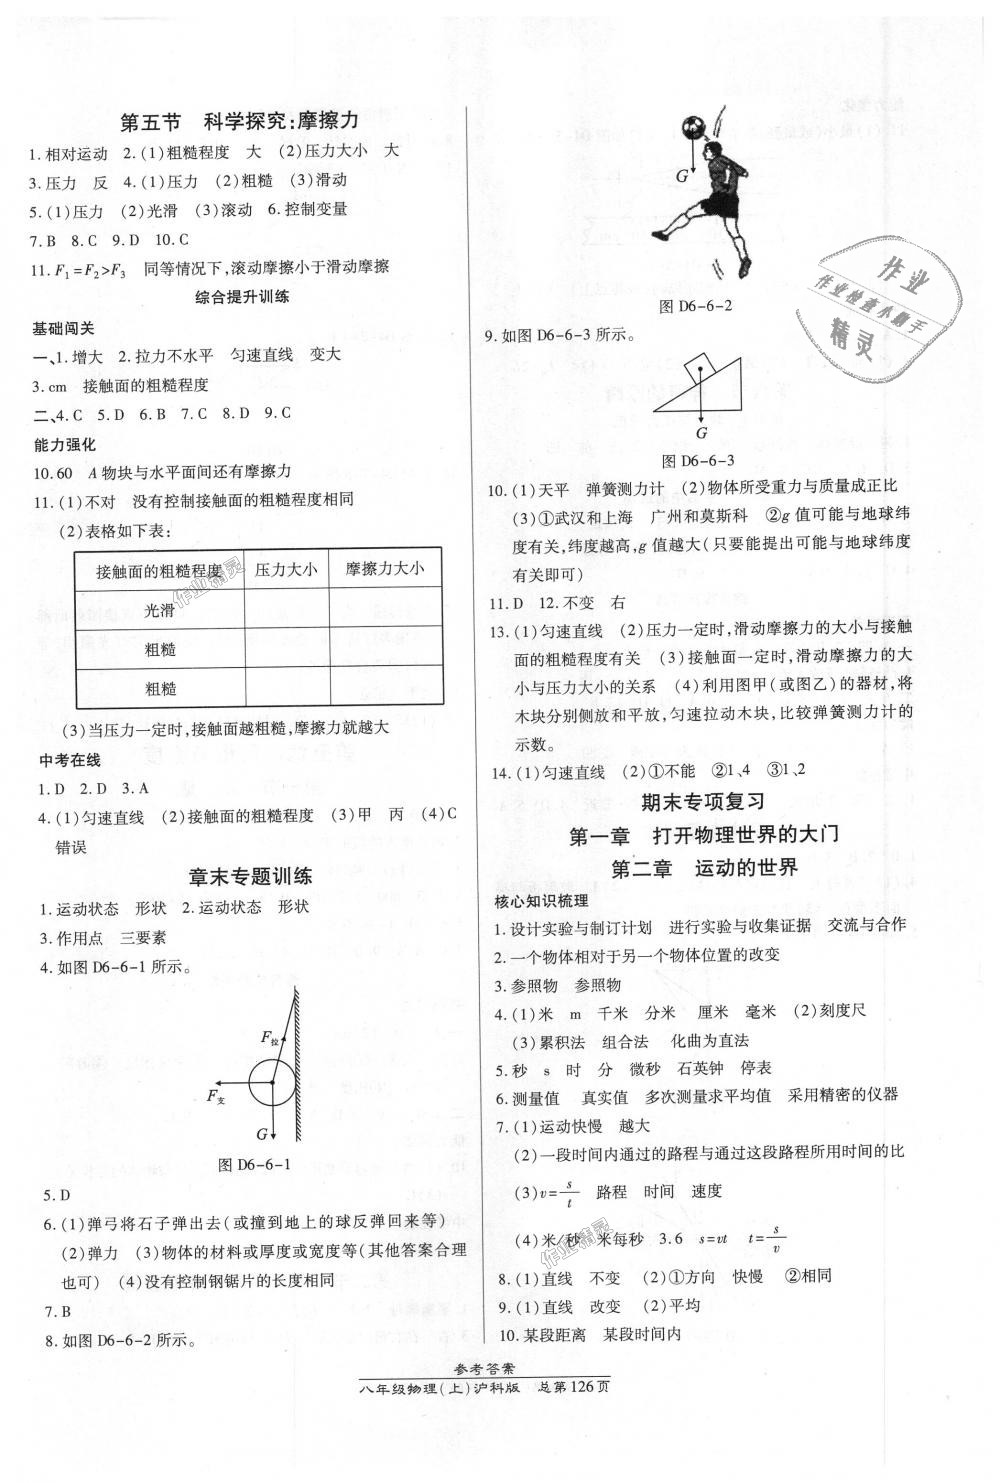 第五节　科学探究:摩擦力
1.相对运动　2.(1)粗糙程度　大　(2)压力大小　大
3.压力　反　4.(1)压力　(2)粗糙　(3)滑动
5.(1)压力　(2)光滑　(3)滚动　6.控制变量
7.B　8.C　9.D　10.C
11.F₁=F₂>F₃　同等情况下,滚动摩擦小于滑动摩擦
综合提升训练
基础闯关
一、1.增大　2.拉力不水平　匀速直线　变大
3.cm　接触面的粗糙程度
二、4.C　5.D　6.B　7.C　8.D　9.C
能力强化
10.60　A物块与水平面间还有摩擦力
11.(1)不对　没有控制接触面的粗糙程度相同
(2)表格如下表:
接触面的粗糙程度　压力大小　摩擦力大小
光滑
粗糙
粗糙
(3)当压力一定时,接触面越粗糙,摩擦力就越大
中考在线
1.D　2.D　3.A
4.(1)匀速直线　(2)接触面的粗糙程度　(3)甲　丙　(4)C
错误
章末专题训练
1.运动状态　形状　2.运动状态　形状
3.作用点　三要素
4.如图D6-6-1所示。
F拉
F支
G
图D6-6-1
5.D
6.(1)弹弓将石子弹出去(或撞到地上的球反弹回来等)
(2)弹力　(3)物体的材料或厚度或宽度等(其他答案合理
也可)　(4)没有控制钢锯片的长度相同
7.B
8.如图D6-6-2所示。
G
图D6-6-2
9.如图D6-6-3所示。
G
图D6-6-3
10.(1)天平　弹簧测力计　(2)物体所受重力与质量成正比
(3)①武汉和上海　广州和莫斯科　②g值可能与地球纬
度有关,纬度越高,g值越大(只要能提出可能与地球纬度
有关即可)
11.D　12.不变　右
13.(1)匀速直线　(2)压力一定时,滑动摩擦力的大小与接触
面的粗糙程度有关　(3)接触面一定时,滑动摩擦力的大
小与压力大小的关系　(4)利用图甲(或图乙)的器材,将
木块分别侧放和平放,匀速拉动木块,比较弹簧测力计的
示数。
14.(1)匀速直线　(2)①不能　②1、4　③1、2
期末专项复习
第一章　打开物理世界的大门
第二章　运动的世界
核心知识梳理
1.设计实验与制订计划　进行实验与收集证据　交流与合作
2.一个物体相对于另一个物体位置的改变
3.参照物　参照物
4.(1)米　m　千米　分米　厘米　毫米　(2)刻度尺
(3)累积法　组合法　化曲为直法
5.秒　s　时　分　微秒　石英钟　停表
6.测量值　真实值　多次测量求平均值　采用精密的仪器
7.(1)运动快慢　越大
(2)一段时间内通过的路程与通过这段路程所用时间的比
(3)v=s/t　路程　时间　速度
(4)米/秒　米每秒　3.6　s=vt　t=s/v
8.(1)直线　不变　(2)①方向　快慢　②相同
9.(1)直线　改变　(2)平均
10.某段距离　某段时间内
参考答案
八年级物理(上)沪科版　总第126页
作业
作业检查小助手
精灵
作业精灵
作业精灵